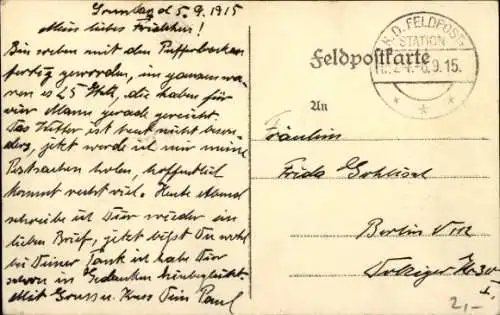 Sonntag d 5.9.1915
Mein liebes Fridchen!
Bin soeben mit den Pufferbacken
fertig geworden, im ganzen wa-
ren es 25 Stck, die haben für
vier Mann gerade gereicht.
Das Wetter ist heut nicht beson-
ders, jetzt werde ich mir meine
Postsachen holen, hoffentlich
kommt recht viel. Heute Abend
schreibe ich Dir wieder ein
lieben Brief, jetzt bist Du wohl
bei Deiner Tante ich habe Dir
schon in Gedanken hinbegleitet.
Mit Gruss u. Kuss Dein Paul
K.D. FELDPOST
STATION
5.9.15.
Feldpostkarte
An
Fräulein
Frida
Berlin
Str 30
2,-